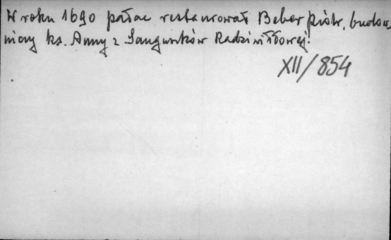 W roku 1690 pałac restaurował Beber Piotr, budow
niczy ks. Anny z Sanguszków Radziwiłłowej.
XII/854